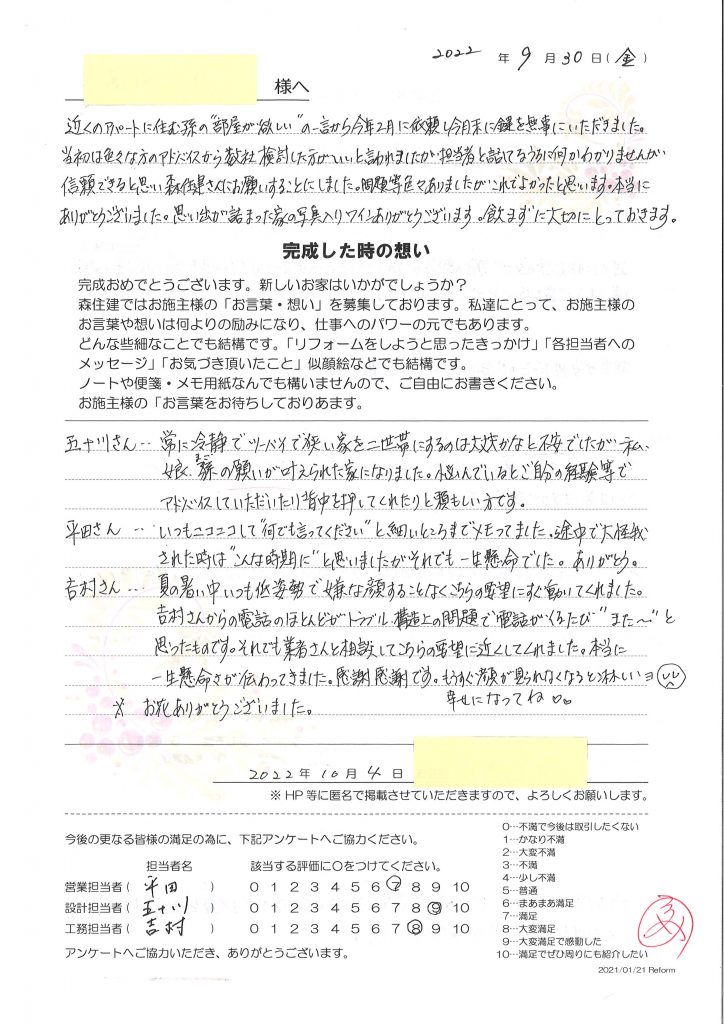 2022 年 9 月 30 日(金)
様へ
近くのアパートに住む孫の"部屋が欲しい"の一言から今年2月に依頼し今月末に鍵を無事にいただきました。
当初は色々な方のアドバイスから数社検討した方がいいと言われましたが担当者と話てるうちに何かわかりませんが
信頼できると思い森住建さんにお願いすることにしました。問題等色々ありましたがこれでよかったと思います。本当に
ありがとうございました。思い出が詰まった家の写真入りワインありがとうございます。飲まずに大切にとっておきます。
完成した時の想い
完成おめでとうございます。新しいお家はいかがでしょうか?
森住建ではお施主様の「お言葉・想い」を募集しております。私達にとって、お施主様の
お言葉や想いは何よりの励みになり、仕事へのパワーの元でもあります。
どんな些細なことでも結構です。「リフォームをしようと思ったきっかけ」「各担当者への
メッセージ」「お気づき頂いたこと」似顔絵などでも結構です。
ノートや便箋・メモ用紙なんでも構いませんので、ご自由にお書きください。
お施主様の「お言葉をお待ちしておりあます。
五十川さん… 常に冷静でツーバイで狭い家を二世帯にするのは大丈夫かなと不安でしたが私、
娘、孫の願いが叶えられた家になりました。悩んでいるとご自分の経験等で
まご
アドバイスしていただいたり背中を押してくれたりと頼もしい方です。
平田さん… いつもニコニコして"何でも言ってください"と、細いところまでメモってました。途中で大怪我
された時は"こんな時期に"と思いましたがそれでも一生懸命でした。ありがとう。
吉村さん… 夏の暑い中いつも低姿勢で嫌な顔することなくこちらの要望にすぐ動いてくれました。
吉村さんからの電話のほとんどがトラブル、構造上の問題で電話がくるたび"また〜"と
思ったものです。それでも業者さんと相談してこちらの要望に近くしてくれました。本当に
一生懸命さが伝わってきました。感謝感謝です。もうすぐ顔が見られなくなると淋しいヨ
※ お花ありがとうございました。
幸せになってね
2022年10月4日
※HP等に匿名で掲載させていただきますので、よろしくお願いします。
今後の更なる皆様の満足の為に、下記アンケートへご協力ください。
担当者名 該当する評価に○をつけてください。
営業担当者( 平田 ) 0 1 2 3 4 5 6 7 8 9 10
設計担当者( 五十川 ) 0 1 2 3 4 5 6 7 8 9 10
工務担当者( 吉村 ) 0 1 2 3 4 5 6 7 8 9 10
アンケートへご協力いただき、ありがとうございます。
0…不満で今後は取引したくない
1…かなり不満
2…大変不満
3…不満
4…少し不満
5…普通
6…まあまあ満足
7…満足
8…大変満足
9…大変満足で感動した
10…満足でぜひ周りにも紹介したい
2021/01/21 Reform